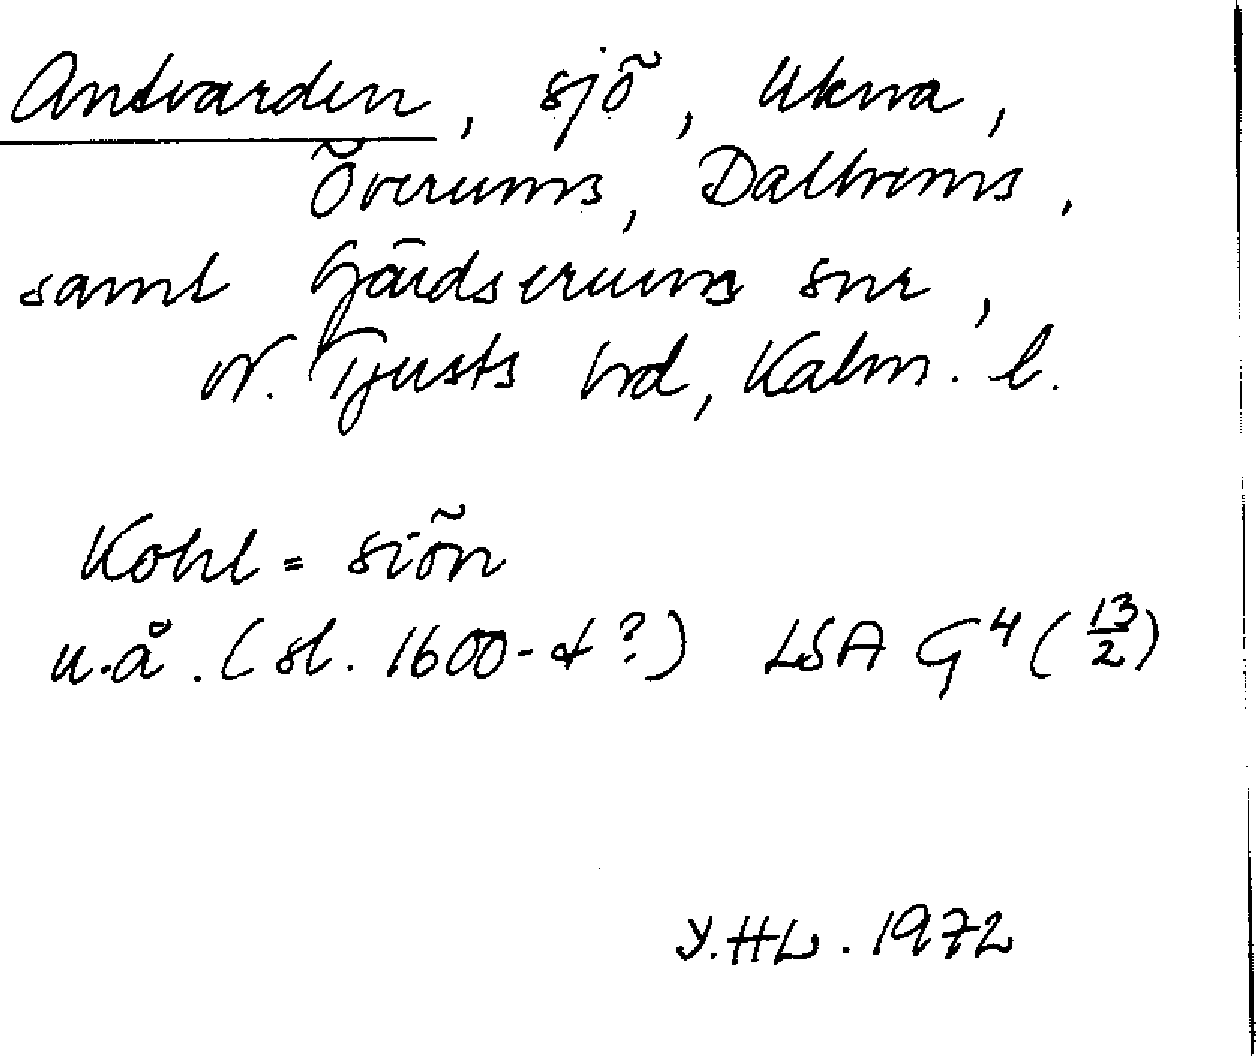 Antvarden, sjö, Ukna,
Överums, Dalhems,
samt Gärdserums snr,
N. Tjusts hd, Kalm. l.
Kohl = siön
u.å. (sl. 1600-t?) LSA G4 (13/2)
Y.HL. 1972